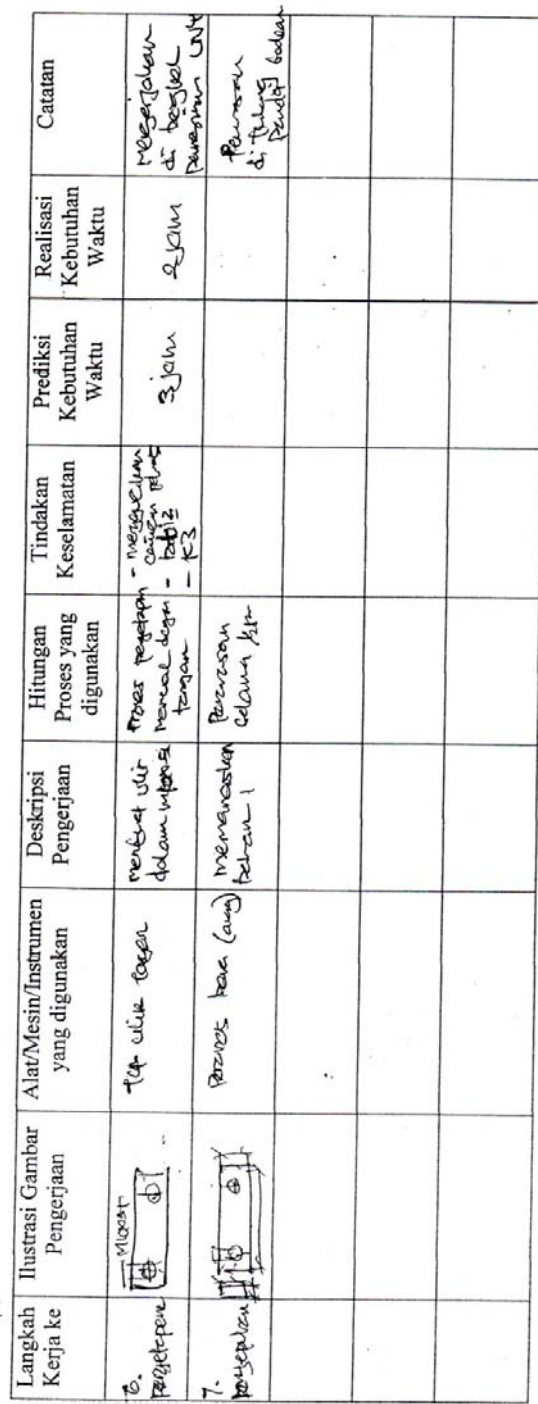 Langkah
Kerja ke
Ilustrasi Gambar
Pengerjaan
Alat/Mesin/Instrumen
yang digunakan
Deskripsi
Pengerjaan
Hitungan
Proses yang
digunakan
Tindakan
Keselamatan
Prediksi
Kebutuhan
Waktu
Realisasi
Kebutuhan
Waktu
Catatan
6.
pengetapan
Tap ulir tangan
membuat ulir
dalam
Proses pengetapan
manual dengan
tangan
- menggunakan
- K3
3 jam
2 jam
mengerjakan
di bengkel
7.
Pemanas bara (arang)
memanaskan
bahan 1
Pemanasan
selama
di tukang